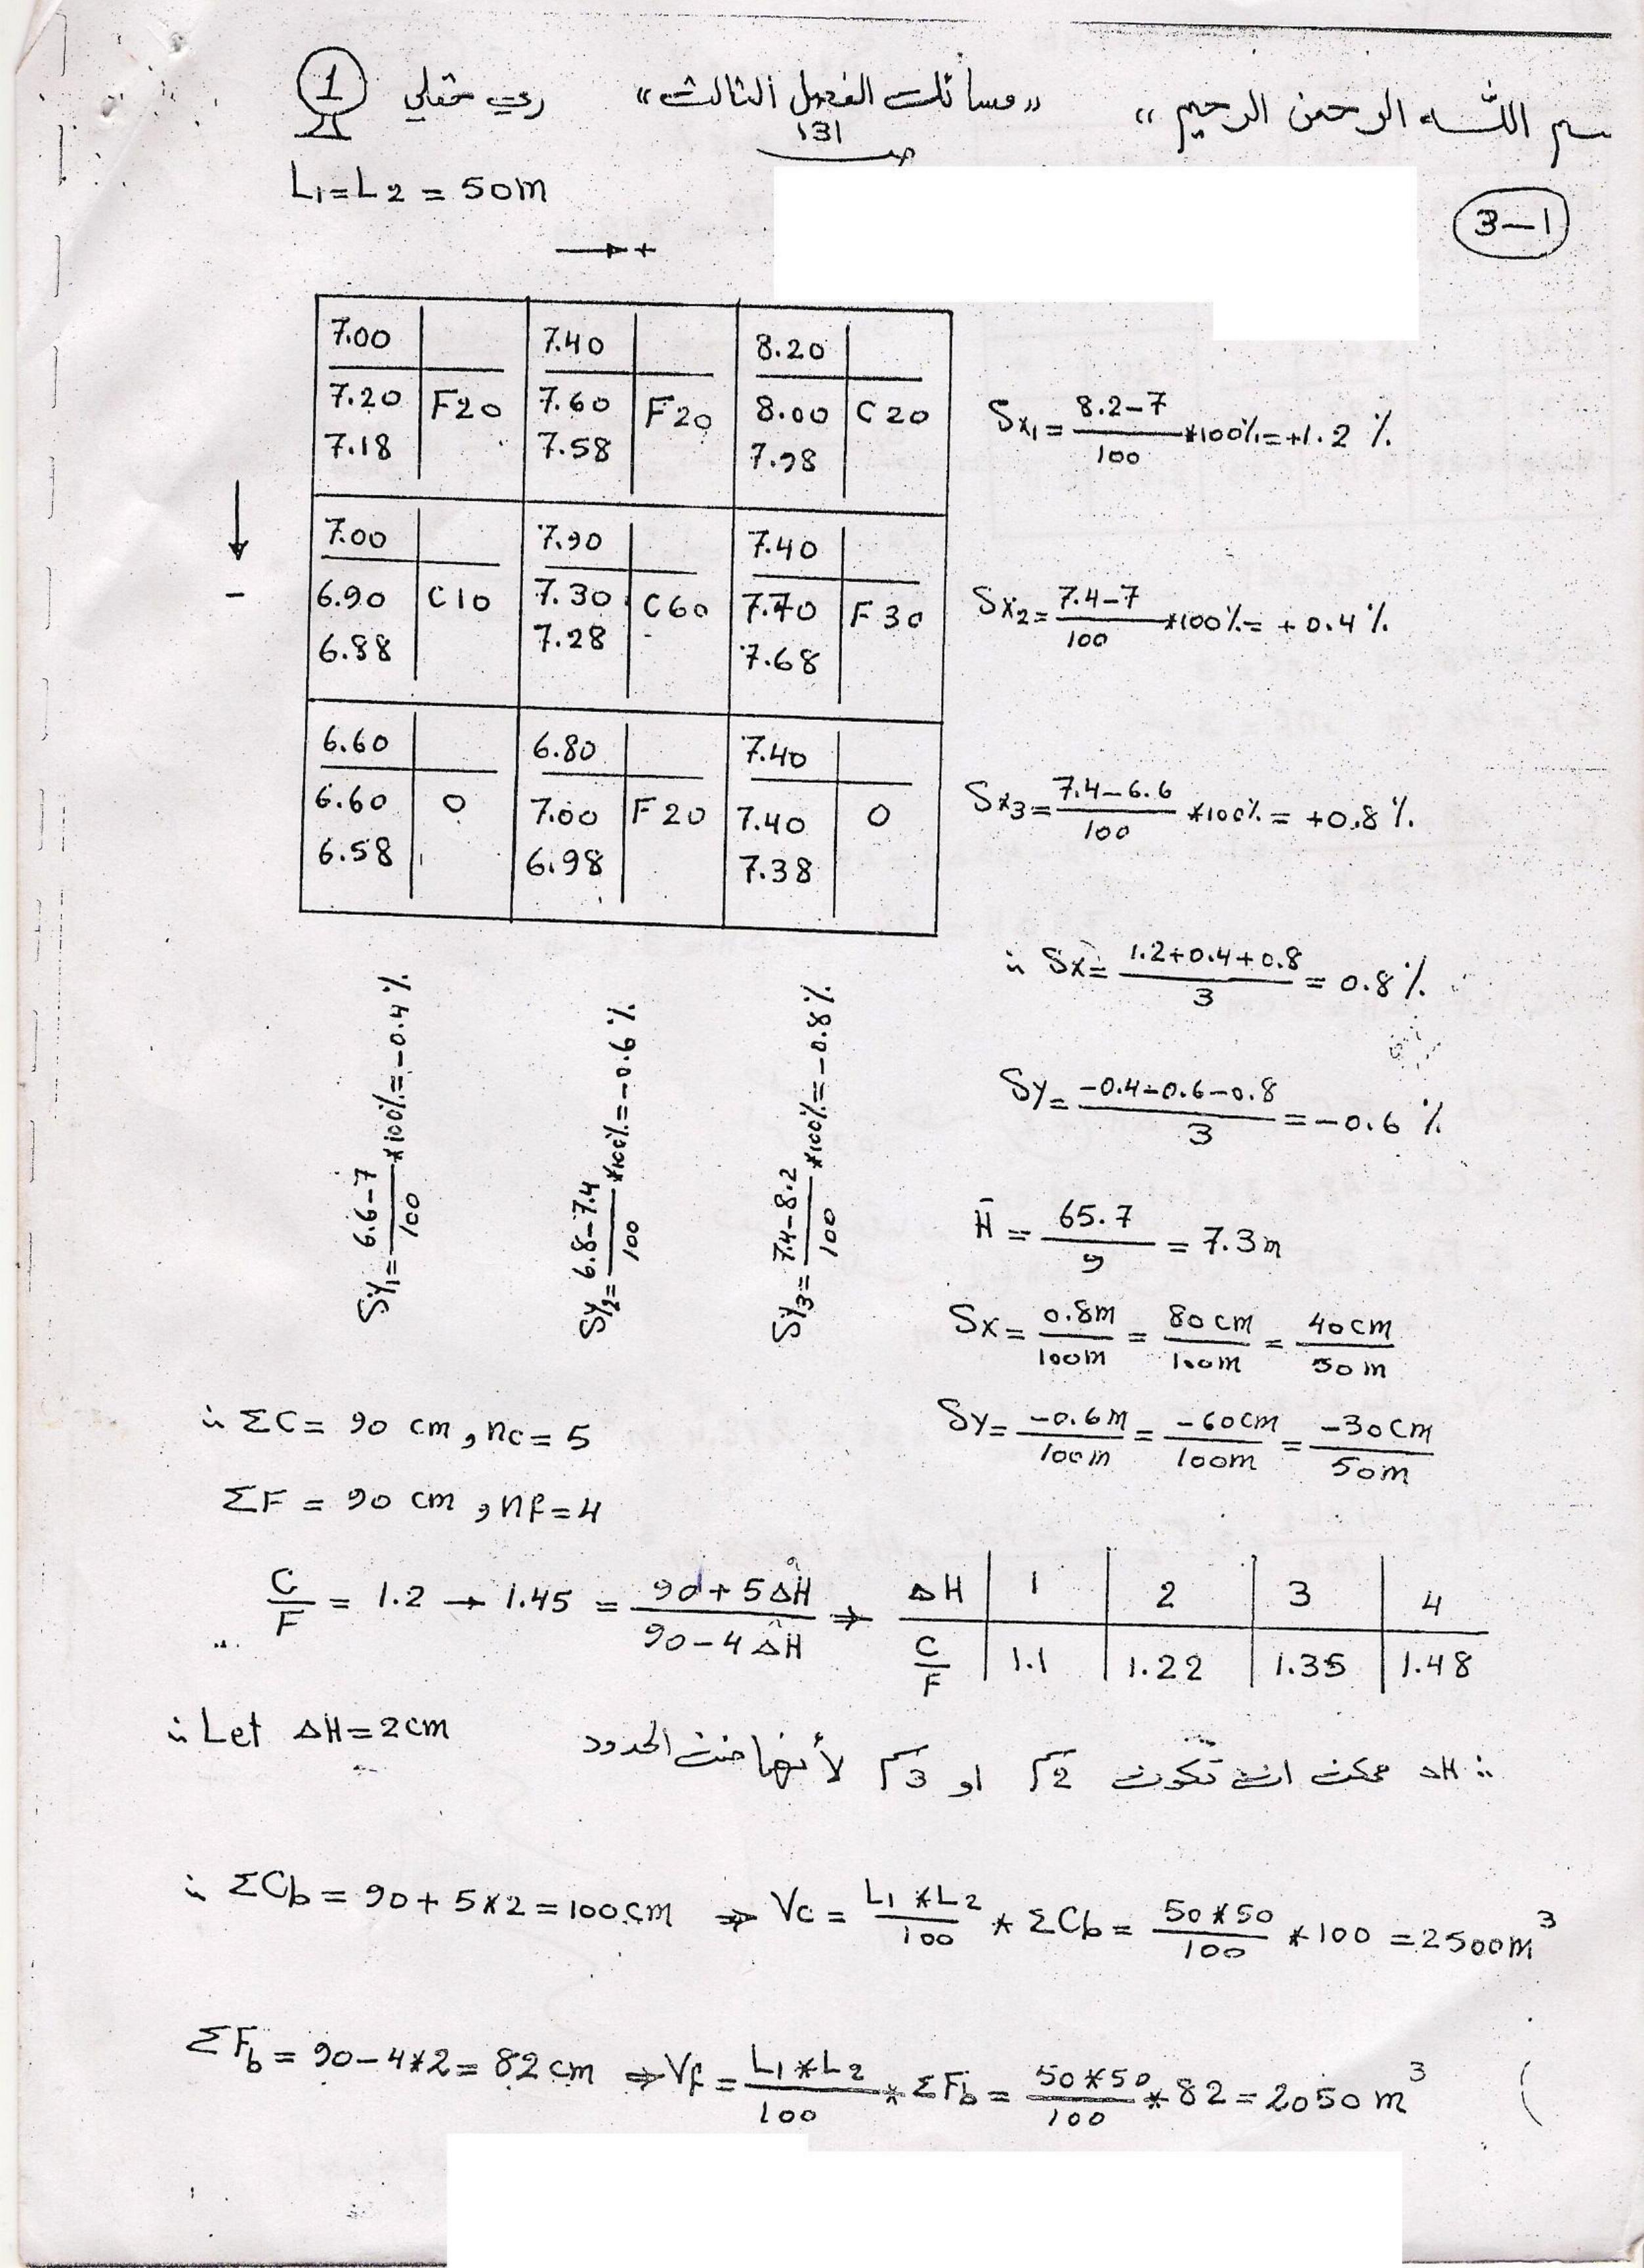 بسم الله الرحمن الرحيم "
"مسائل الفصل الثالث"
ص 131
ري حقلي
1
3-1
L1=L2 = 50m
→ +
↓
-
7.00 | 7.40 | 8.20
7.20 F20 | 7.60 F20 | 8.00 C20
7.18 | 7.58 | 7.98
7.00 | 7.90 | 7.40
6.90 C10 | 7.30 C60 | 7.70 F30
6.88 | 7.28 | 7.68
6.60 | 6.80 | 7.40
6.60 0 | 7.00 F20 | 7.40 0
6.58 | 6.98 | 7.38
Sx1= (8.2-7)/100 *100%=+1.2 %
Sx2= (7.4-7)/100 *100%= +0.4%
Sx3= (7.4-6.6)/100 *100%= +0.8%
Sy1= (6.6-7)/100 *100%=-0.4%
Sy2= (6.8-7.4)/100 *100%=-0.6%
Sy3= (7.4-8.2)/100 *100%=-0.8%
∴ Sx= (1.2+0.4+0.8)/3 = 0.8%
Sy= (-0.4-0.6-0.8)/3 =-0.6 %
H̄ = 65.7/9 = 7.3m
Sx= 0.8m/100m = 80cm/100m = 40cm/50m
Sy= -0.6m/100m = -60cm/100m = -30cm/50m
∴ ΣC= 90 cm , nc=5
ΣF = 90 cm , nf=4
C/F = 1.2 → 1.45 = (90+5ΔH)/(90-4ΔH) ⇒
ΔH | 1 | 2 | 3 | 4
C/F | 1.1 | 1.22 | 1.35 | 1.48
∴ Let ΔH=2cm
∴ ΔH ممكن ان تكون 2سم او 3سم لأنها ضمن الحدود
∴ ΣCb= 90+5*2=100cm ⇒ Vc= (L1*L2)/100 * ΣCb= (50*50)/100 *100 =2500m³
ΣFb= 90-4*2= 82cm ⇒ Vf= (L1*L2)/100 * ΣFb= (50*50)/100 *82=2050 m³